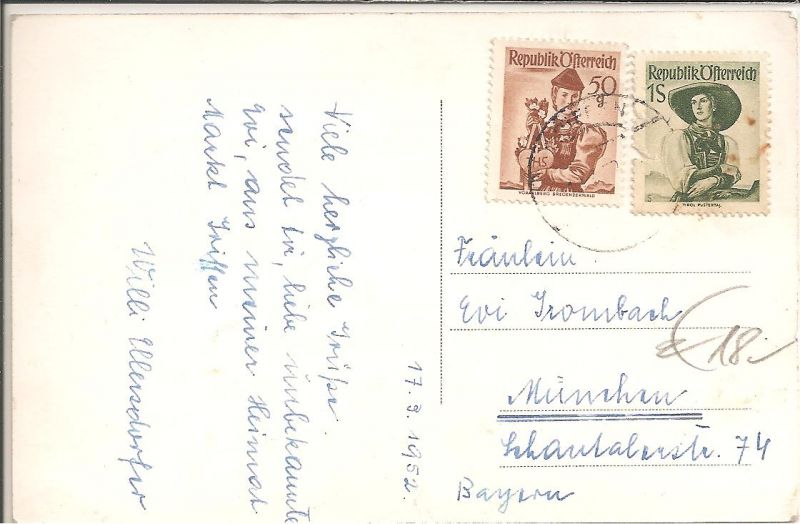 Viele herzliche Grüße
sendet Dir, liebe unbekannte
Evi, aus meiner Heimat
Markt Griffen
Willi Ulersdorfer
17.9.1952.
Republik Österreich
50
VORARLBERG BREGENZERWALD
Republik Österreich
1S
TIROL PUSTERTAL
Fräulein
Evi Trombach
München
Schantalerstr. 74
Bayern
18.-